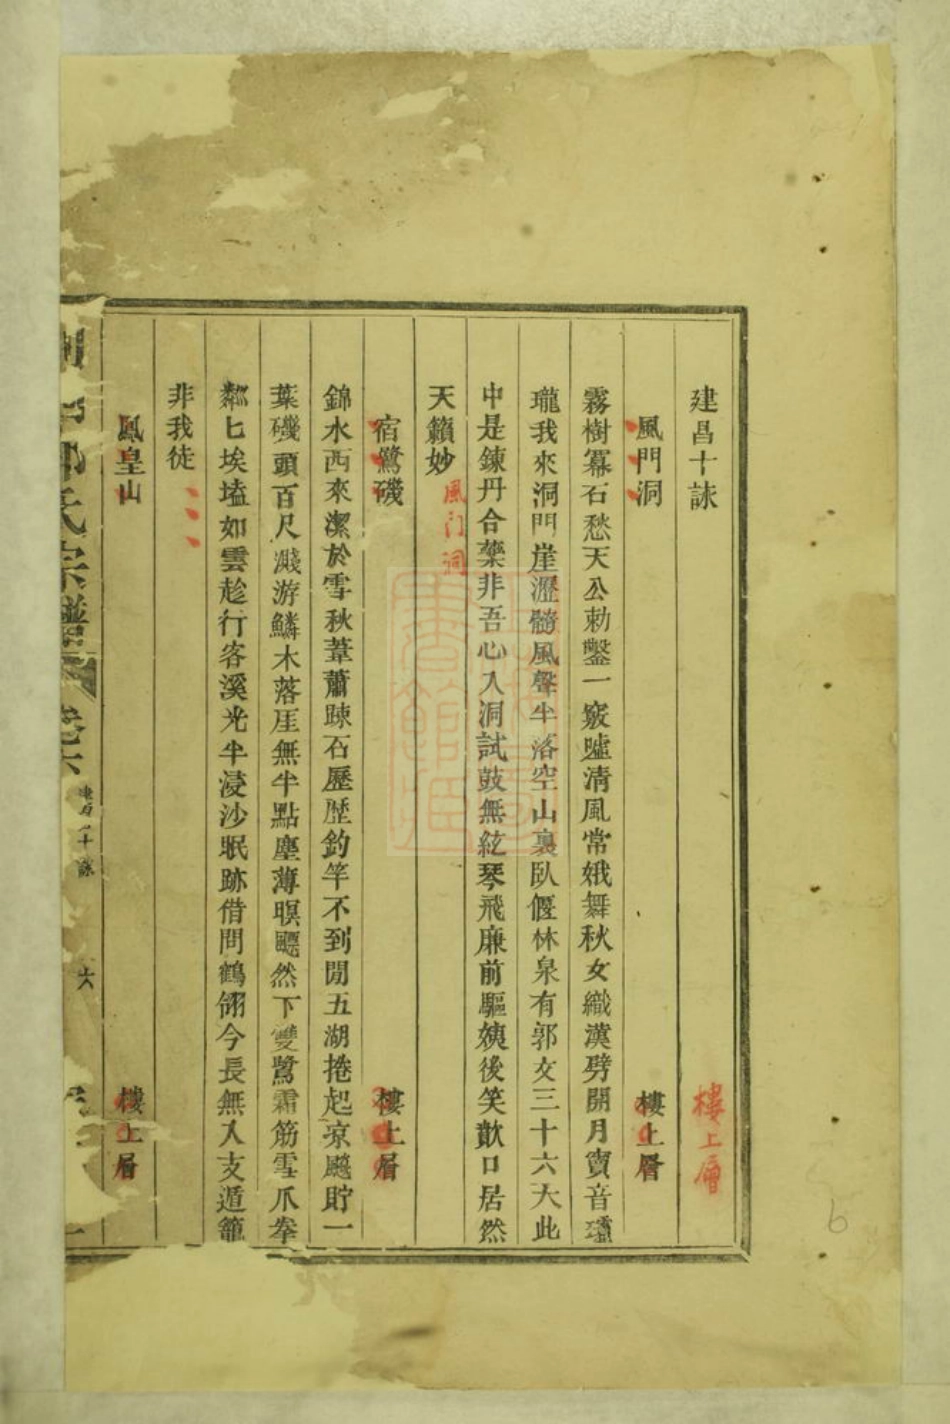 建昌十詠
樓上層
風門洞　樓上層
霧樹冪石愁天公勅鑿一竅噓清風常娥舞秋女織漢劈開月竇音瓏
瓏我來洞門崖瀝髓風聲半落空山裏臥偃林泉有郭文三十六大此
中是鍊丹合藥非吾心入洞試鼓無絃琴飛廉前驅姨後笑歕口居然
天籟妙
風门洞
宿鷺磯　樓上層
錦水西來潔於雪秋葦蕭踈石歷歷釣竿不到閒五湖捲起凉颸貯一
葉磯頭百尺濺游鱗木落厓無半點塵薄暝飄然下雙鷺霜筋雪爪拳
粼匕埃壒如雲趁行客溪光半浸沙眠跡借問鶴翎今長無人支遁籠
非我徒
鳳皇山　樓上層
氏宗譜　卷六　十詠　六